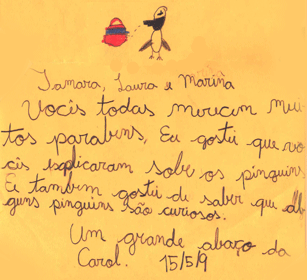 Tamara, Laura e Mariña
Vocês todas merecem mui
tos parabens. Eu gostei que vo
cês explicaram sobe os pinguins
E tambem gostei de saber que al
guns pinguins são curiosos.
Um grande abaço da
Carol. 15/5/9